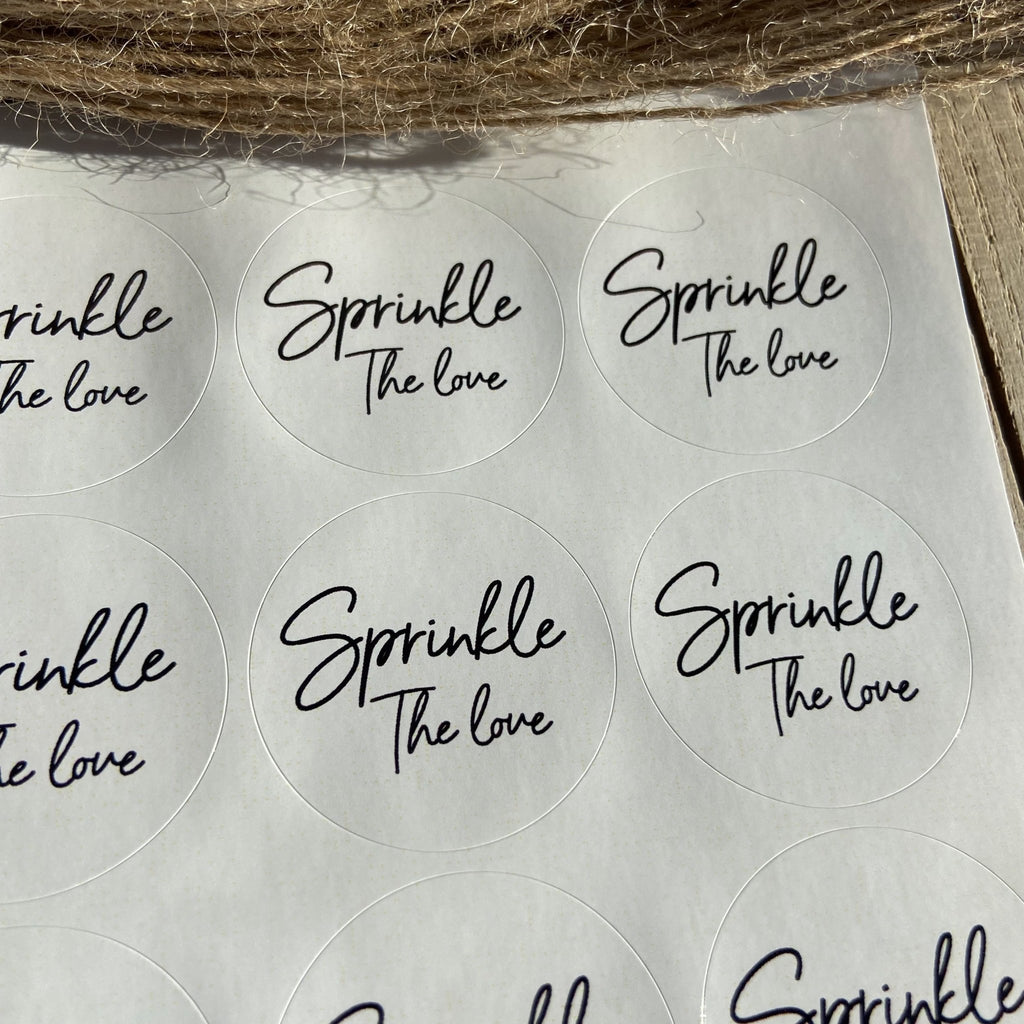 rinkle
The love
Sprinkle
The love
Sprinkle
The love
rinkle
The love
Sprinkle
The love
Sprinkle
The love
Sprinkle